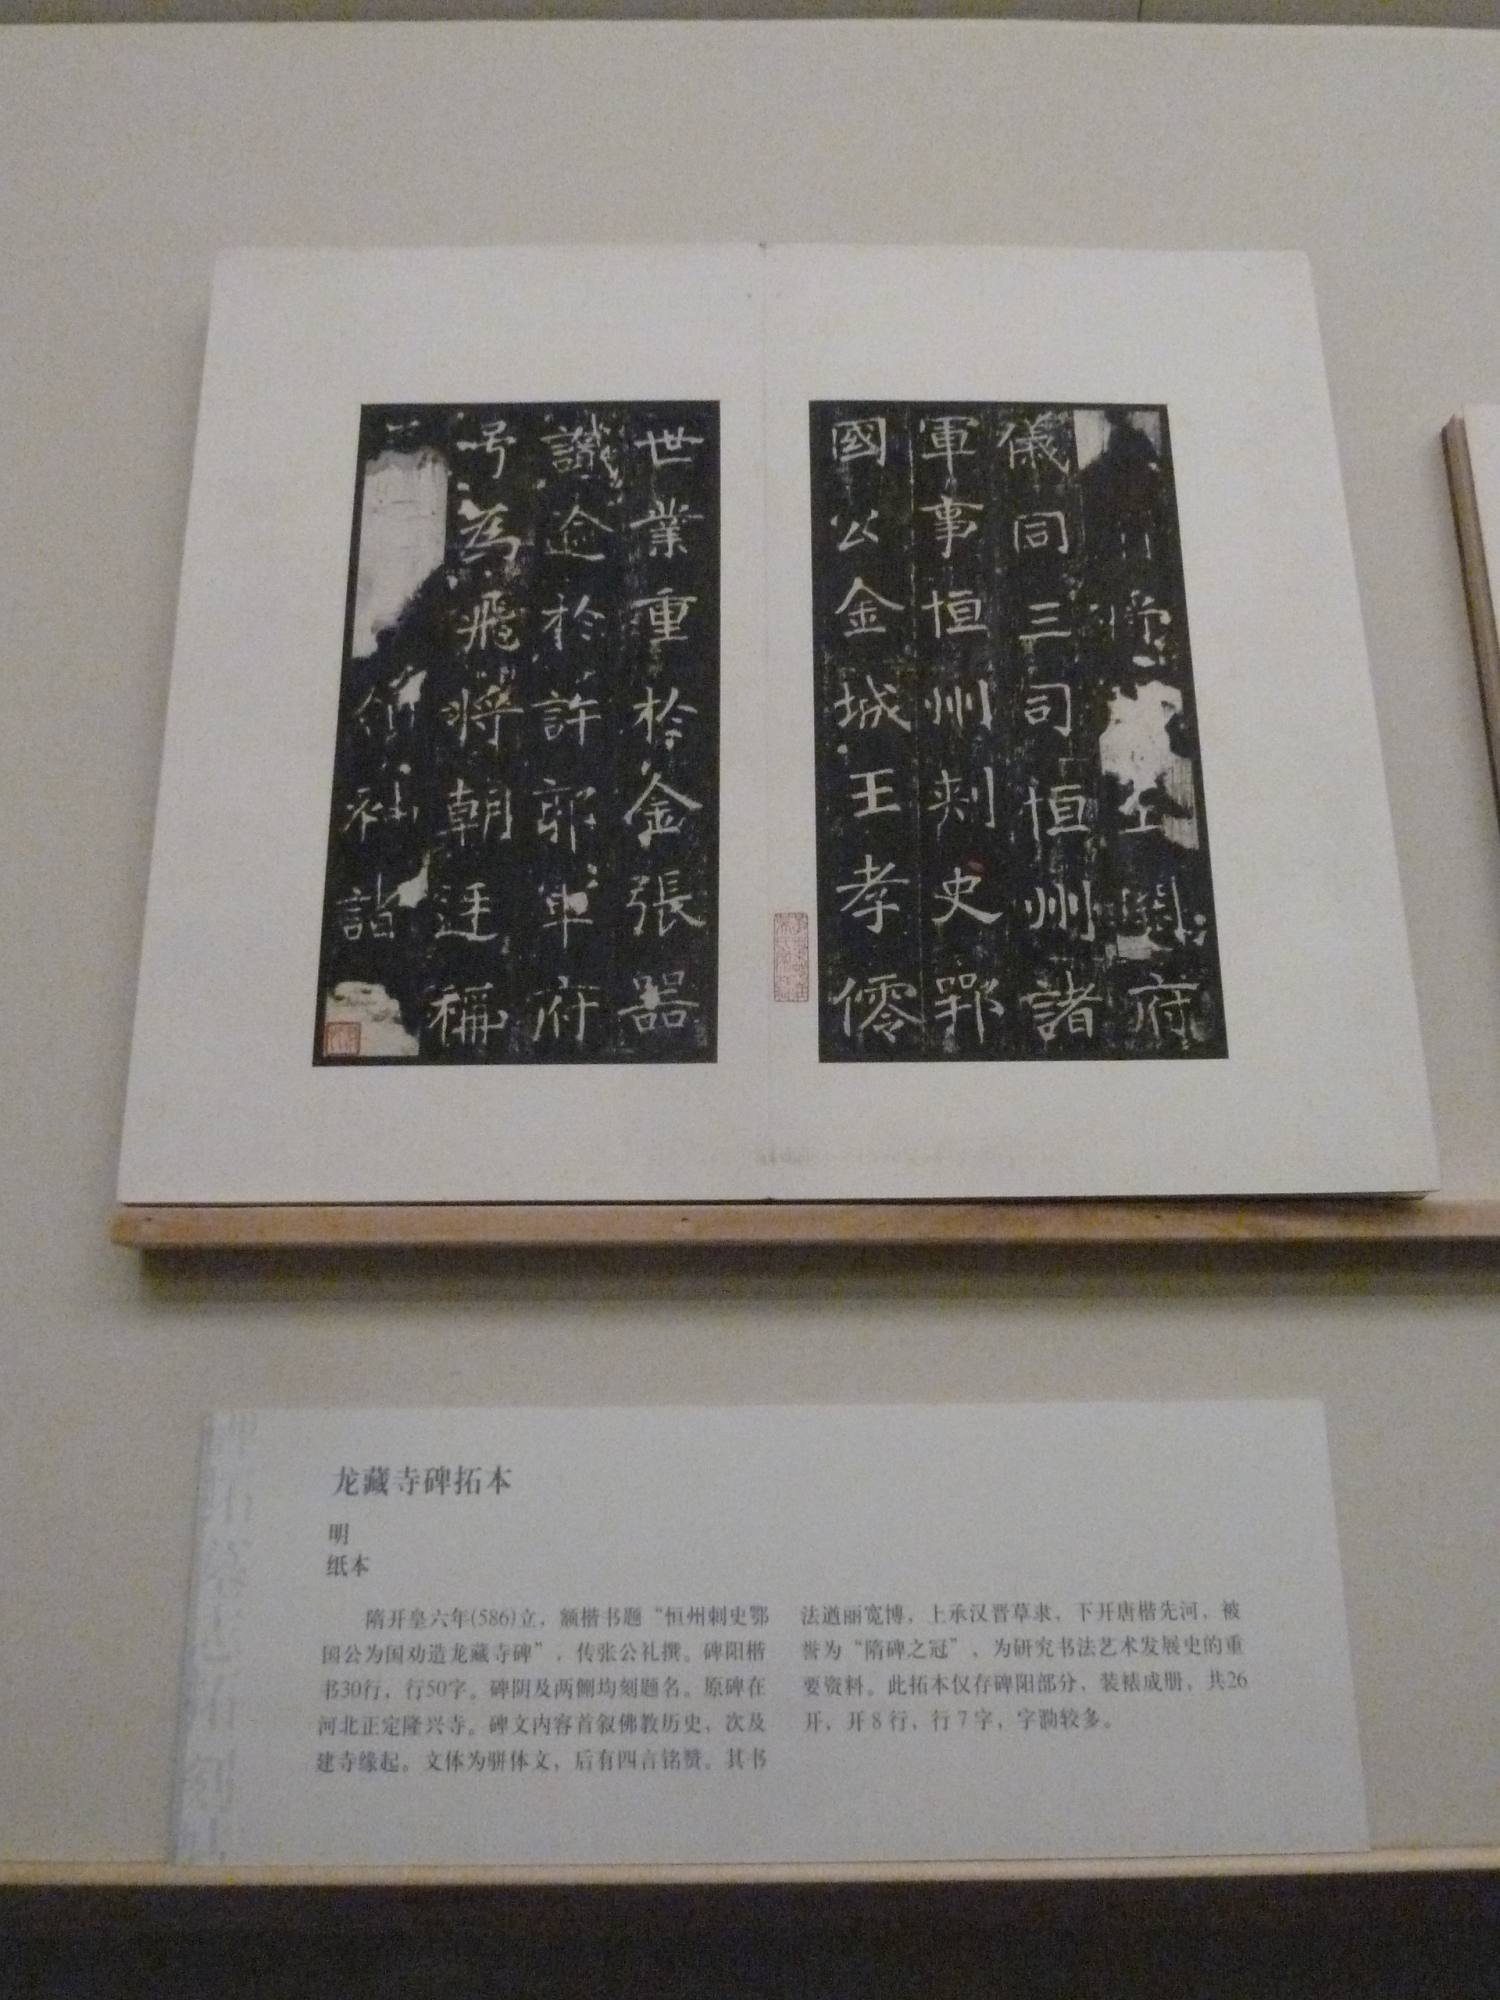 府
儀同三司恒州諸
軍事恒州刺史鄂
國公金城王孝僊
世業重於金張器
識逾於許郭軍府
号為飛將朝廷稱
社詣
龙藏寺碑拓本
明
纸本
隋开皇六年(586)立，额楷书题“恒州刺史鄂
国公为国劝造龙藏寺碑”，传张公礼撰。碑阳楷
书30行，行50字。碑阴及两侧均刻题名。原碑在
河北正定隆兴寺。碑文内容首叙佛教历史，次及
建寺缘起。文体为骈体文，后有四言铭赞。其书
法遒丽宽博，上承汉晋草隶，下开唐楷先河，被
誉为“隋碑之冠”，为研究书法艺术发展史的重
要资料。此拓本仅存碑阳部分，装裱成册，共26
开，开8行，行7字，字泐较多。